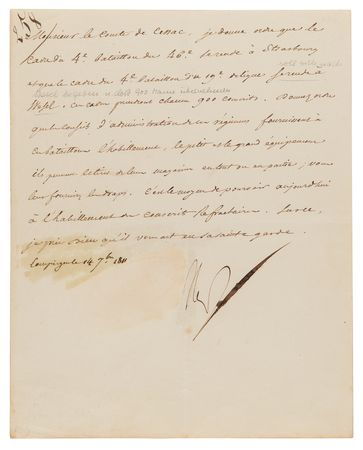 258
Monsieur le Comte de Cessac, je donne ordre que le
cadre du 4e bataillon du 46e se rende à Strasbourg
et que le cadre du 4e bataillon du 19e de ligne se rende à
Wesel. ces cadres prendront chacun 900 conscrits. Donnez ordre
que le conseil d'administration de ces régimens fournissent à
ces bataillons l'habillement, le petit et le grand équipement
ils peuvent le tirer de leur magasin en tout ou en partie; vous
leur fournirez les draps. C'est le moyen de pourvoir aujourd'hui
à l'habillement des conscrits réfractaires. Sur ce,
je prie Dieu qu'il vous ait en sa sainte garde.
Compiegne le 14 7bre 1811
Nap